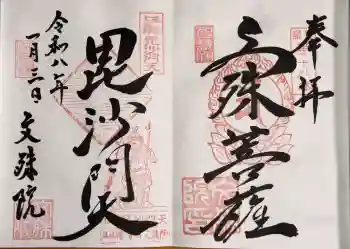 奉拝
文殊菩薩
毘沙門天
令和八年
一月三日
文殊院